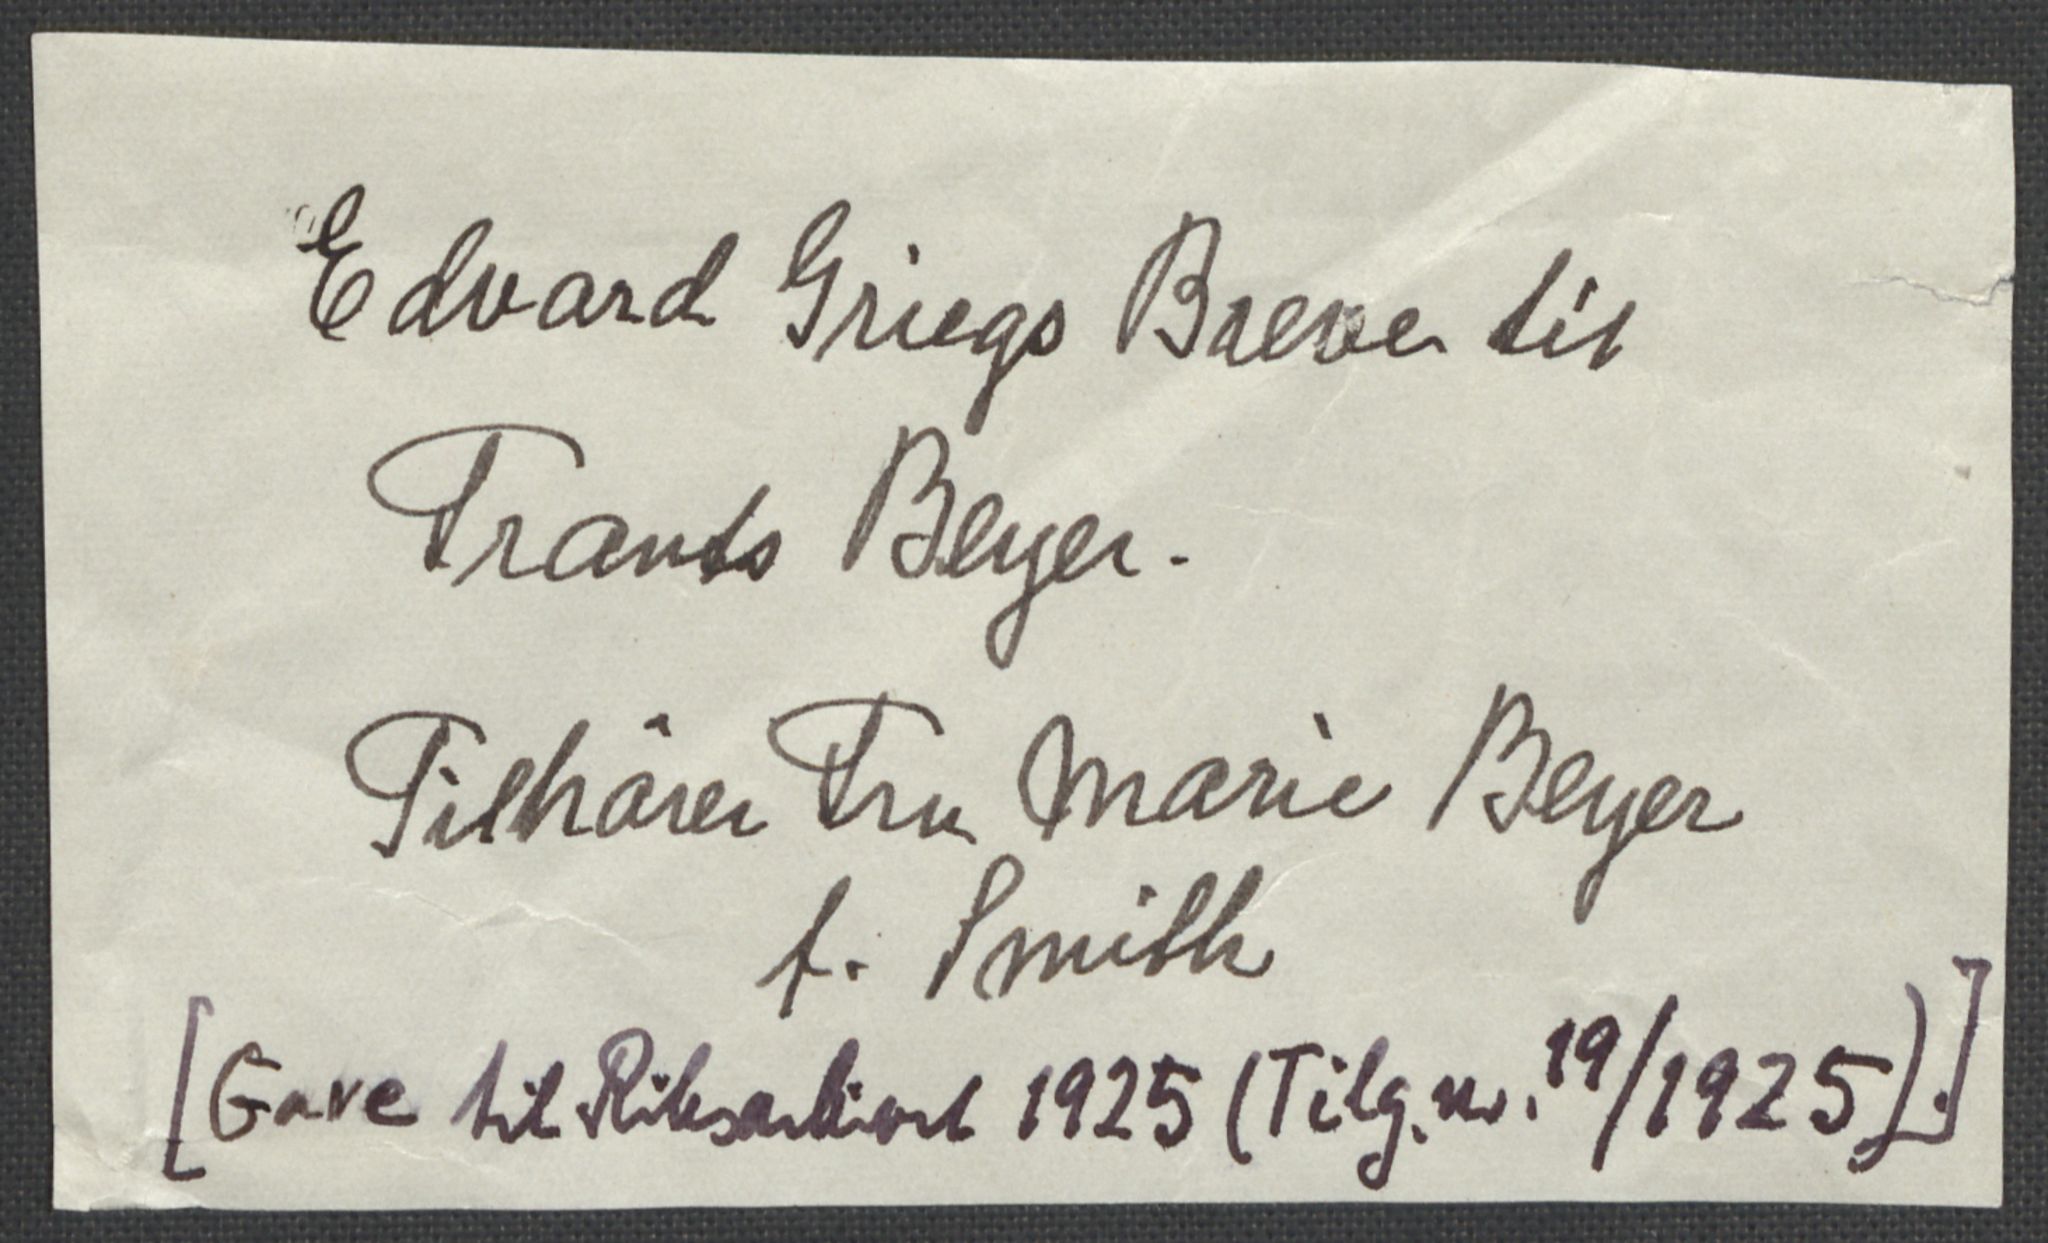 Edvard Griegs Breve til
Frants Beyer.
Tilhörer Fru Marie Beyer
f. Smith
[Gave til Riksarkivet 1925 (Tilg.nr. 19/1925).]